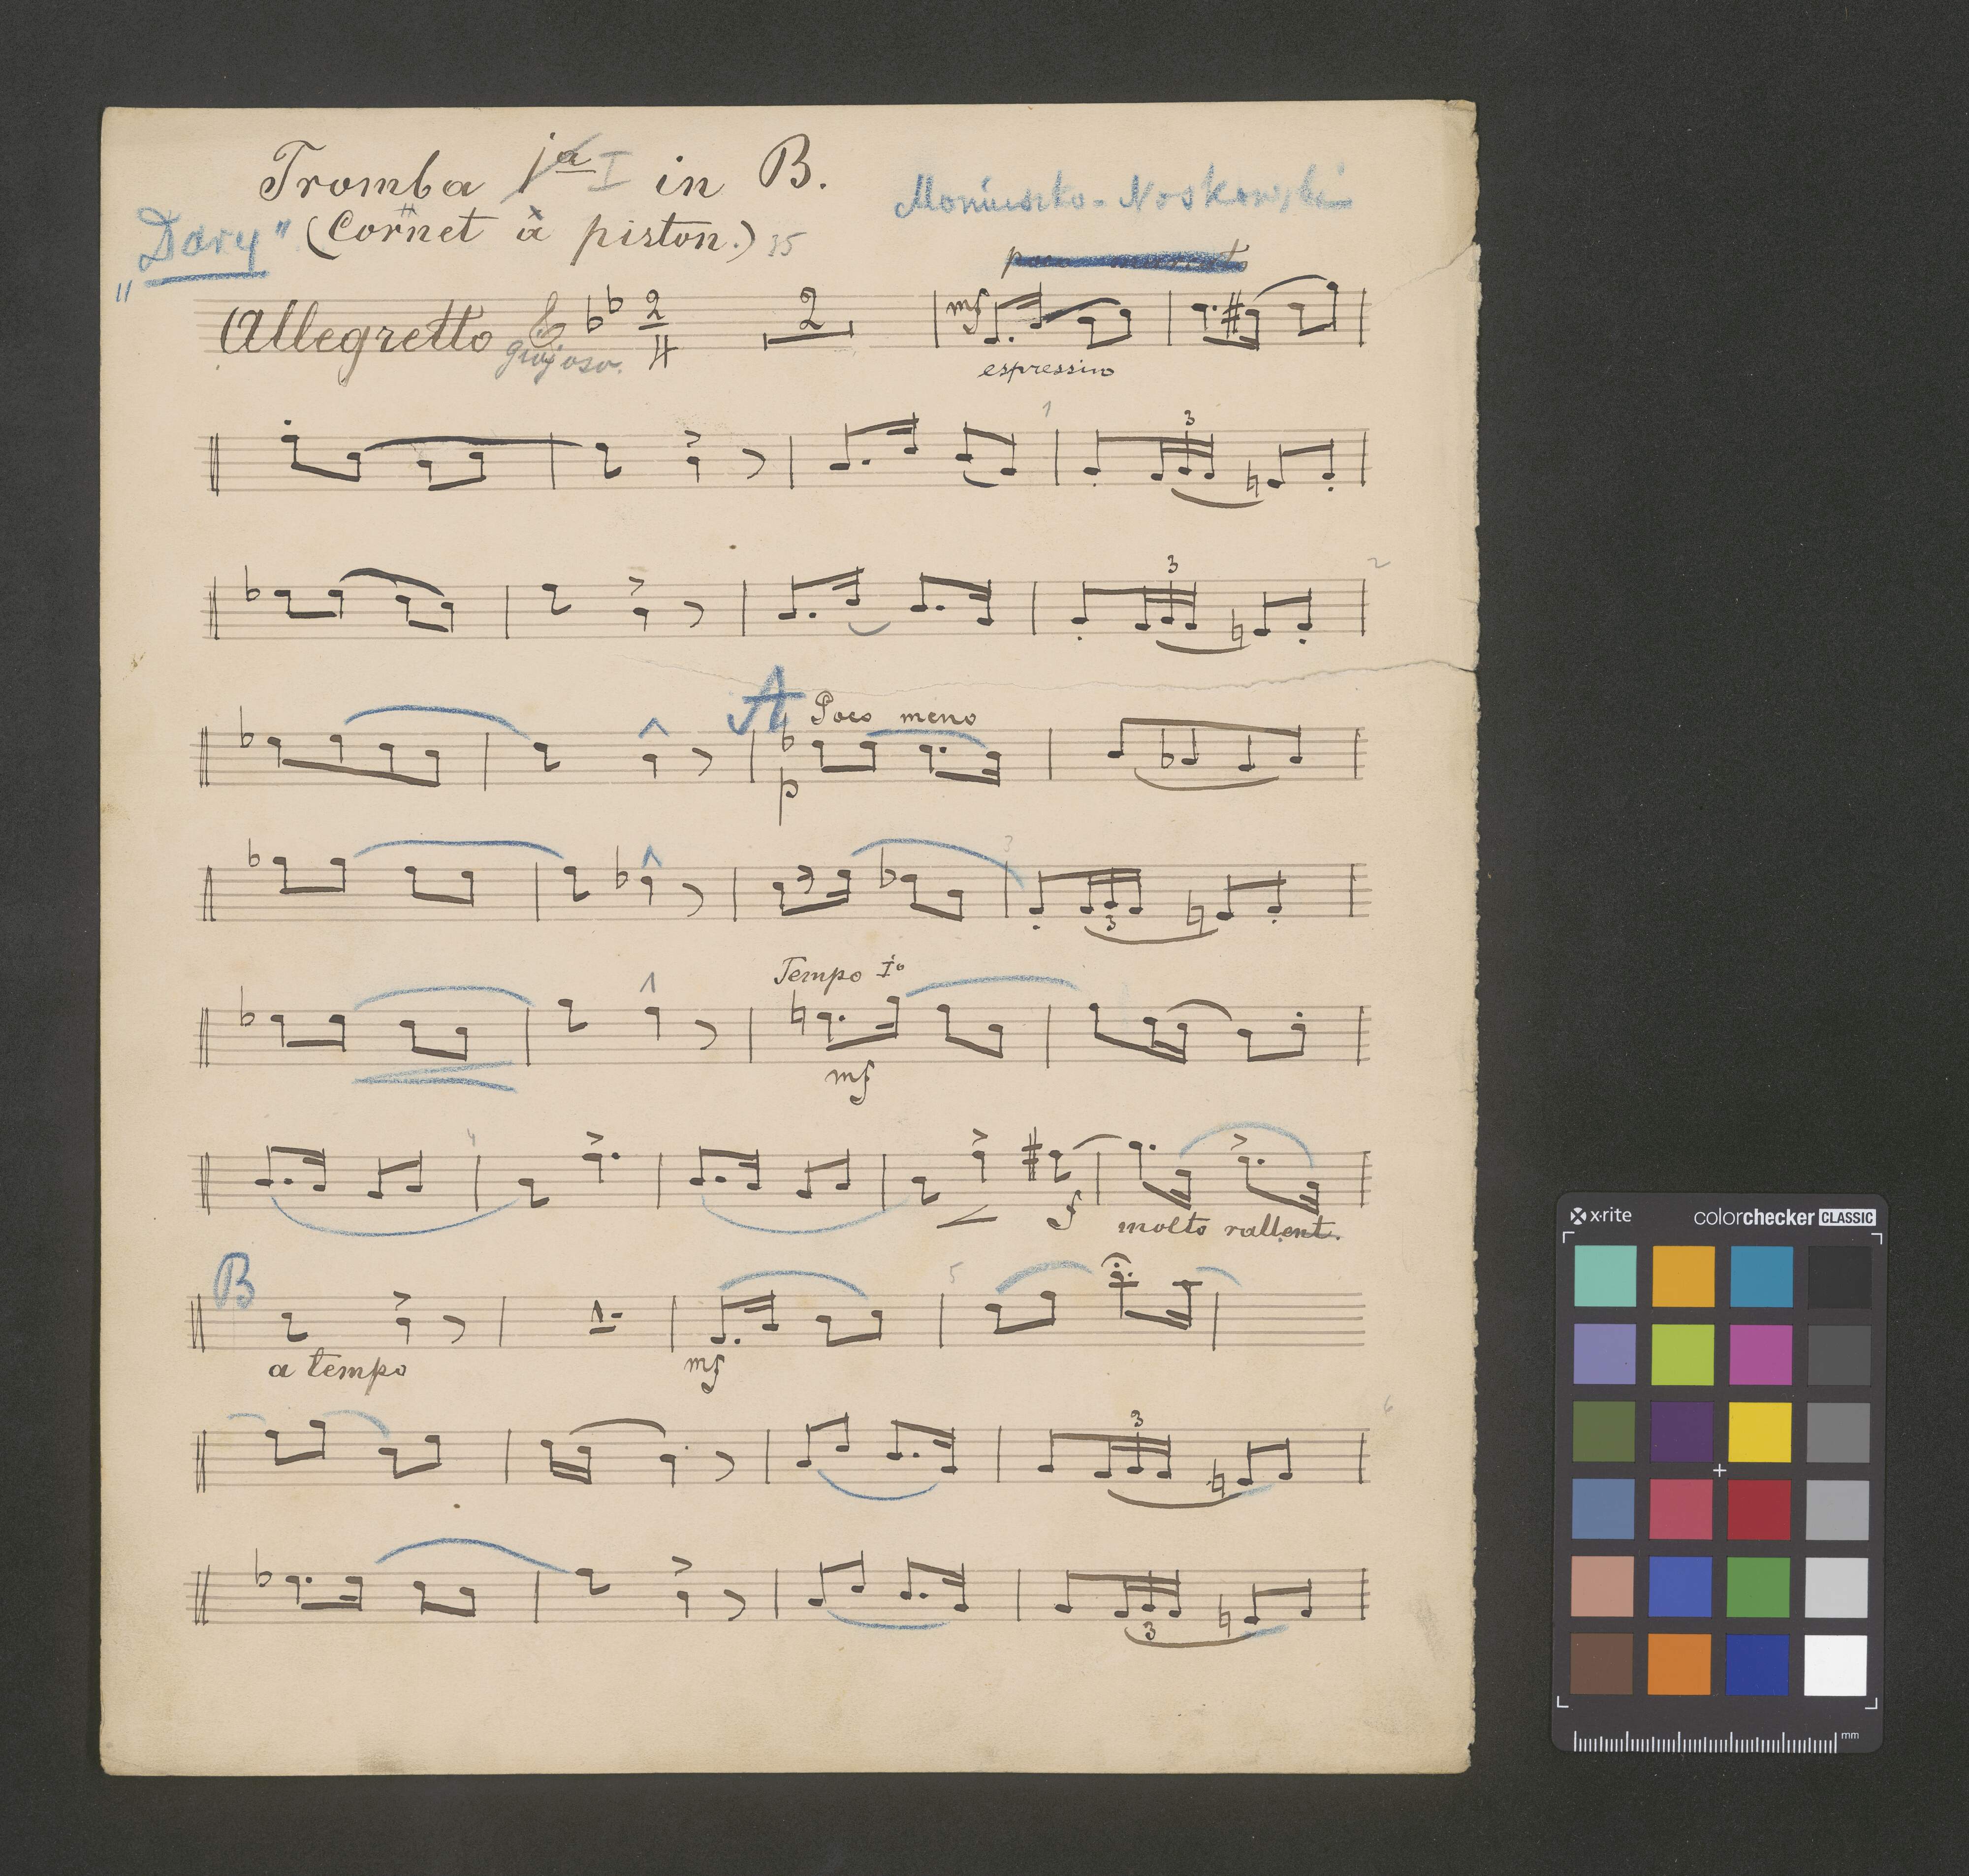 Tromba 1a I in B.
Moniuszko-Noskowski
"Dary" (Cornet à piston.) 35
Allegretto 2/4 2 mf
espressivo
1 3
3 2
A Poco meno
p
3
3
Tempo Io
mf
4
f molto rallent.
B 5
a tempo mf
3 6
3
x-rite colorchecker CLASSIC
mm